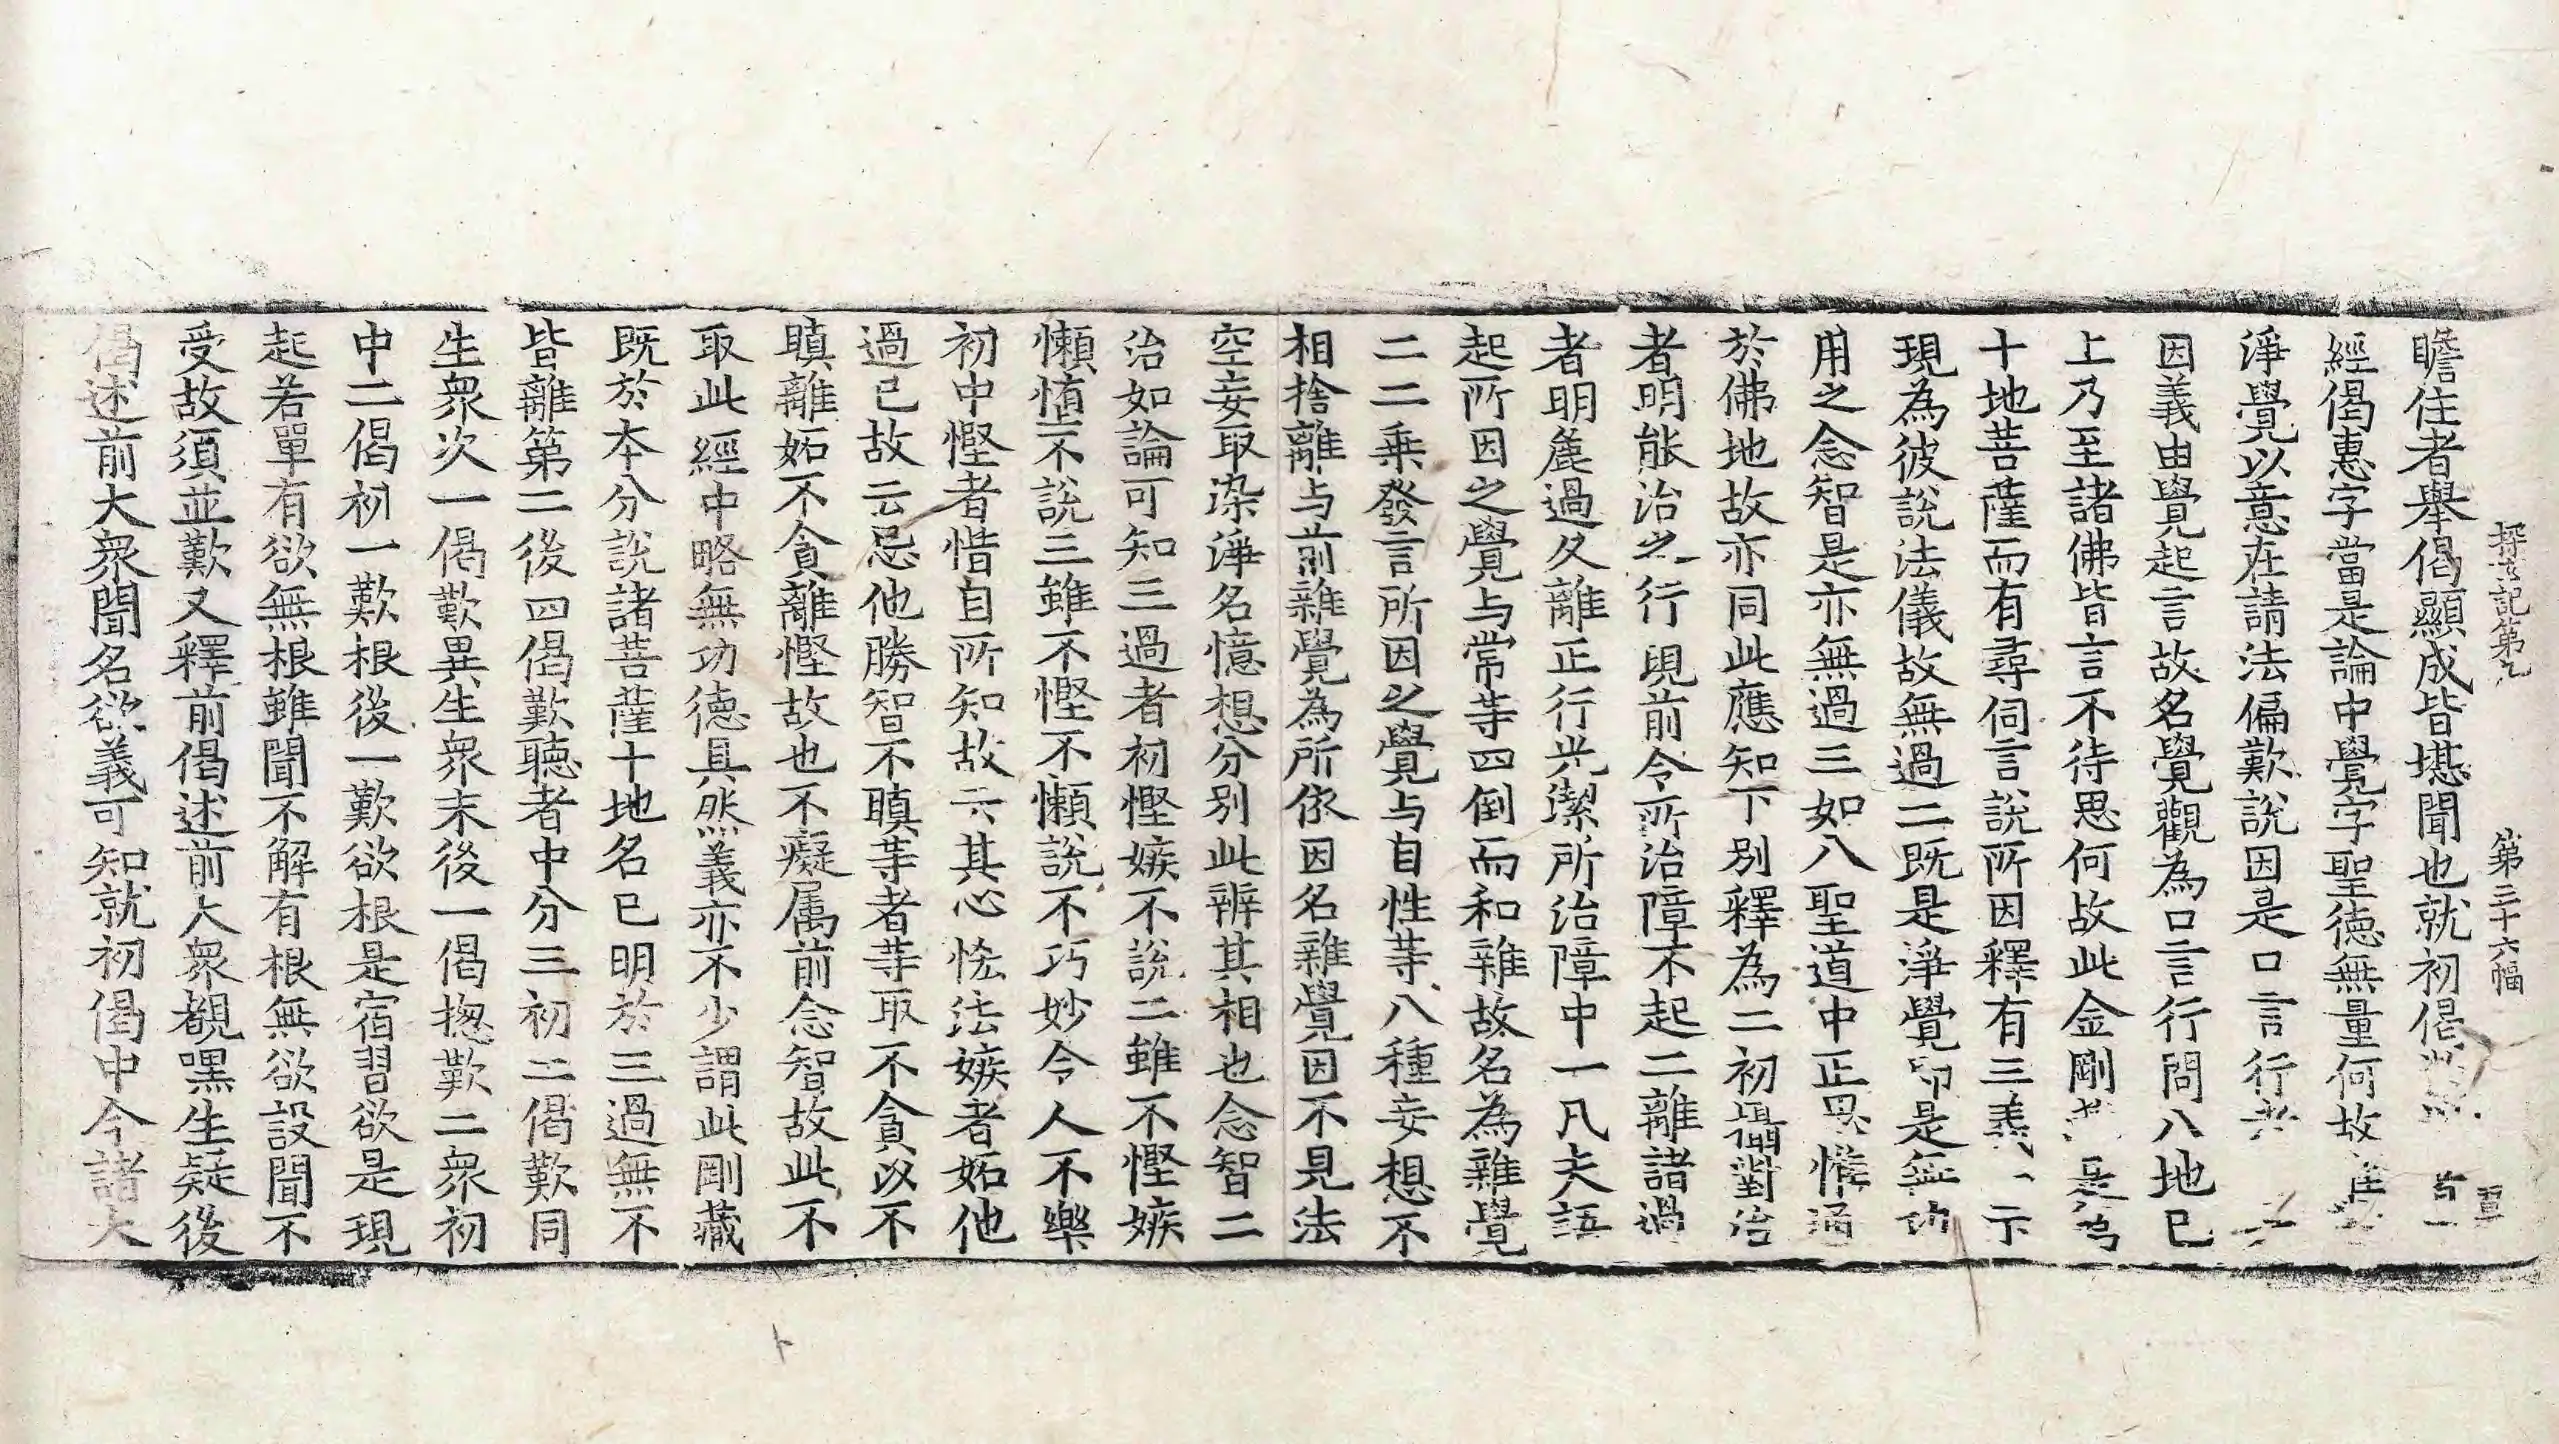 探玄記第九 第三十六幅
瞻住者舉偈顯成皆堪聞也就初偈
經偈惠字當是論中覺字聖德無量何故
淨覺以意在請法偏歎說因是口言行
因義由覺起言故名覺觀為口言行問八地已
上乃至諸佛皆言不待思何故此金剛
十地菩薩而有尋伺言說所因釋有三義一示
現為彼說法儀故無過二既是淨覺即是無功
用之念智是亦無過三如八聖道中正思惟通
於佛地故亦同此應知下別釋為二初攝對治
者明能治之行現前令所治障不起二離諸過
者明麁過久離正行光潔所治障中一凡夫語
起所因之覺与常等四倒而和雜故名為雜覺
二二乘發言所因之覺与自性等八種妄想不
相捨離与前雜覺為所依因名雜覺因不見法
空妄取染淨名憶想分別此辨其相也念智二
治如論可知三過者初慳嫉不說二雖不慳嫉
懶惰不說三雖不慳不懶說不巧妙令人不樂
初中慳者惜自所知故云其心悋法嫉者妬他
過已故云忌他勝智不瞋等者等取不貪以不
瞋離妬不貪離慳故也不癡属前念智故此不
取此經中略無功德具然義亦不少謂此剛藏
既於本分說諸菩薩十地名已明於三過無不
皆離第二後四偈歎聽者中分三初二偈歎同
生衆次一偈歎異生衆末後一偈揔歎二衆初
中二偈初一歎根後一歎欲根是宿習欲是現
起若單有欲無根雖聞不解有根無欲設聞不
受故須並歎又釋前偈述前大衆覩嘿生疑後
偈述前大衆聞名欲義可知就初偈中今諸大